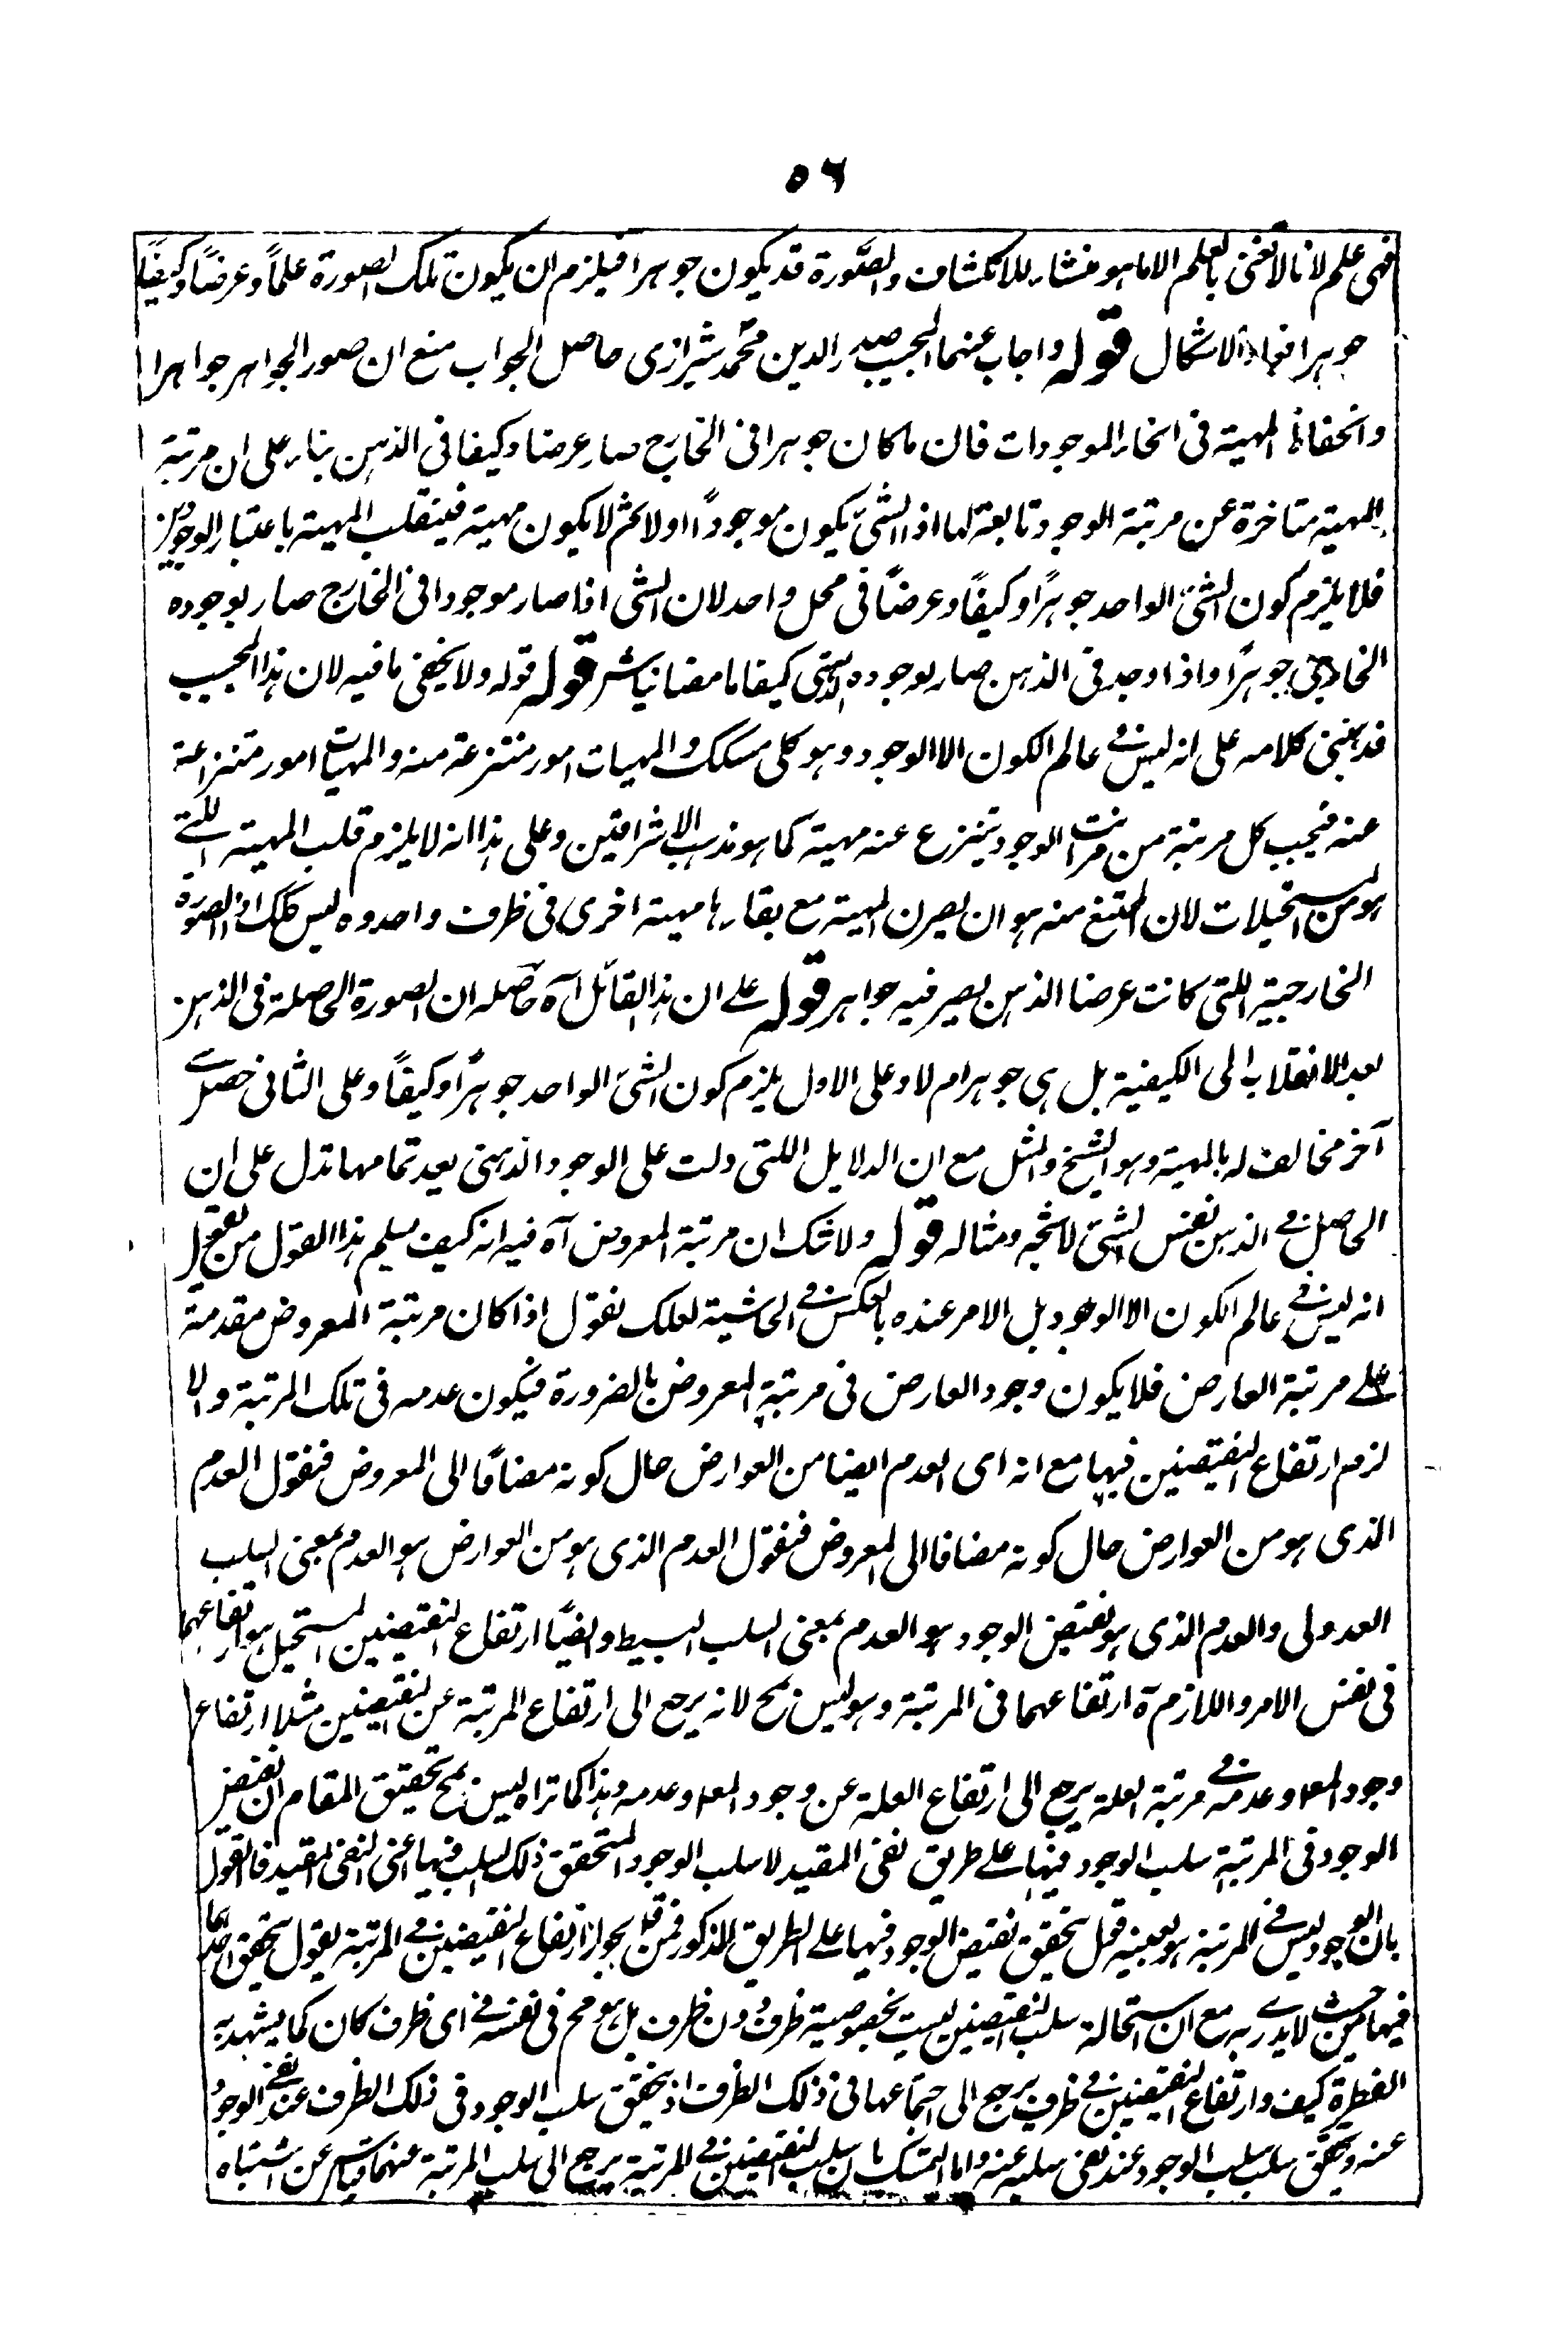 ٥٦
فهى علم لانا لا نعنى بالعلم الا ما هو منشاء للانكشاف والصّورة قد يكون جوهرا فيلزم ان يكون تلك الصورة علماً وعرضاً وكيفاً
جوهرا فعاد الاشكال قوله واجاب عنها المجيب صدر الدين محمد شيرازى حاصل الجواب منع ان صور الجواهر جواهرا
وانحفاظ المهية فى انحاء الموجودات فان ما كان جوهرا فى الخارج صار عرضا وكيفا فى الذهن بناء على ان مرتبة
المهية متاخرة عن مرتبة الوجود تابعة لها اذ الشئ يكون موجوداً اولا ثم لا يكون مهية فينقلب المهية باعتبار الوجودين
فلا يلزم كون الشئ الواحد جوهرًا وكيفًا وعرضًا فى محل واحد لان الشى اذا صار موجودا فى الخارج صار بوجوده
الخارجى جوهرًا واذا وجد فى الذهن صار بوجوده الذهنى كيفا قوله قوله ولا يخفى ما فيه لان هذا المجيب
قد بنى كلامه على انه ليس فى عالم الكون الا الوجود وهو كلى مشكك والمهيات امور منتزعة منه والمهيات امور متنزاعة
عنه فبحسب كل مرتبة من مراتب الوجود تينزع عنه مهية كما هو مذهب الاشراقين وعلى هذا انه لا يلزم قلب المهية اللتى
هو من المستحيلات لان الممتنع منه هو ان يصرن المهية مع بقاءها مهية اخرى فى ظرف واحد وه ليس كذلك اذ الصورة
الخارجية اللتى كانت عرضا الذهن يصير فيه جواهر قوله على ان هذا القائل آه حاصله ان الصورة الحاصلة فى الذهن
بعد الانقلاب الى الكيفية بل هى جوهر ام لا وعلى الاول يلزم كون الشئ الواحد جوهرًا وكيفًا وعلى الثانى حصل شئ
آخر مخالف له بالمهية وهو الشبح والمثل مع ان الدلايل اللتى دلت على الوجود الذهنى بعد تمامها تدل على ان
الحاصل فى الذهن نفس الشئ لا شبحه ومثاله قوله ولا شك ان مرتبة المعروض آه فيه انه كيف سلم هذا القول من يقول
انه ليس فى عالم الكون الا الوجود بل الامر عنده بالعكس فى الحاشية لعلك نقول اذا كان مرتبة المعروض مقدمة
على مرتبة العارض فلا يكون وجود العارض فى مرتبة المعروض بالضرورة فيكون عدمه فى تلك المرتبة والا
لزم ارتفاع النقيضين فيها مع انه اى العدم ايضا من العوارض حال كونه مضافًا الى المعروض فنقول العدم
الذى هو من العوارض حال كونه مضافا الى المعروض فنقول العدم الذى هو من العوارض هو العدم بمعنى السلب
العدولى والعدم الذى هو نقيض الوجود هو العدم بمعنى السلب البسيط وايضًا ارتفاع النقيضين المستحيل هو ارتفاعهما
فى نفس الامر واللازم ه ارتفاعهما فى المرتبة وهو ليس بمح لانه يرجع الى ارتفاع المرتبة عن النقيضين مثلا ارتفاع
وجود المع وعدمه فى مرتبة العلة يرجع الى ارتفاع العلة عن وجود المع وعدمه وهذا كما تراه ليس بمح تحقيق المقام ان نقيض
الوجود فى المرتبة سلب الوجود فيها على طريق نفى المقيد لا سلب الوجود المتحقق ذلك السلب فيها اعنى النفى المقيد فالقول
بان الوجود ليس فى المرتبة هو بعينه قول بتحقق نقيض الوجود فيها على الطريق المذكور فمن قال بجواز ارتفاع النقيضين فى المرتبة يقول بتحقق احدهما
فيها من حيث لا يدرى به مع ان استحالة سلب النقيضين ليست بخصوصية ظرف دون ظرف بل هو مح فى نفسه فى اى ظرف كان كما يشهد به
الفطرة كيف وارتفاع النقيضين فى ظرف يرجع الى اجتماعهما فى ذلك الظرف اذ يتحقق سلب الوجود فى ذلك الظرف عند نفى الوجود
عنه ويتحقق سلب سلب الوجود عند نفى سلبه عنه واما التمسك بان سلب النقيضين فى المرتبة يرجع الى سلب المرتبة عنهما عن اشتباه